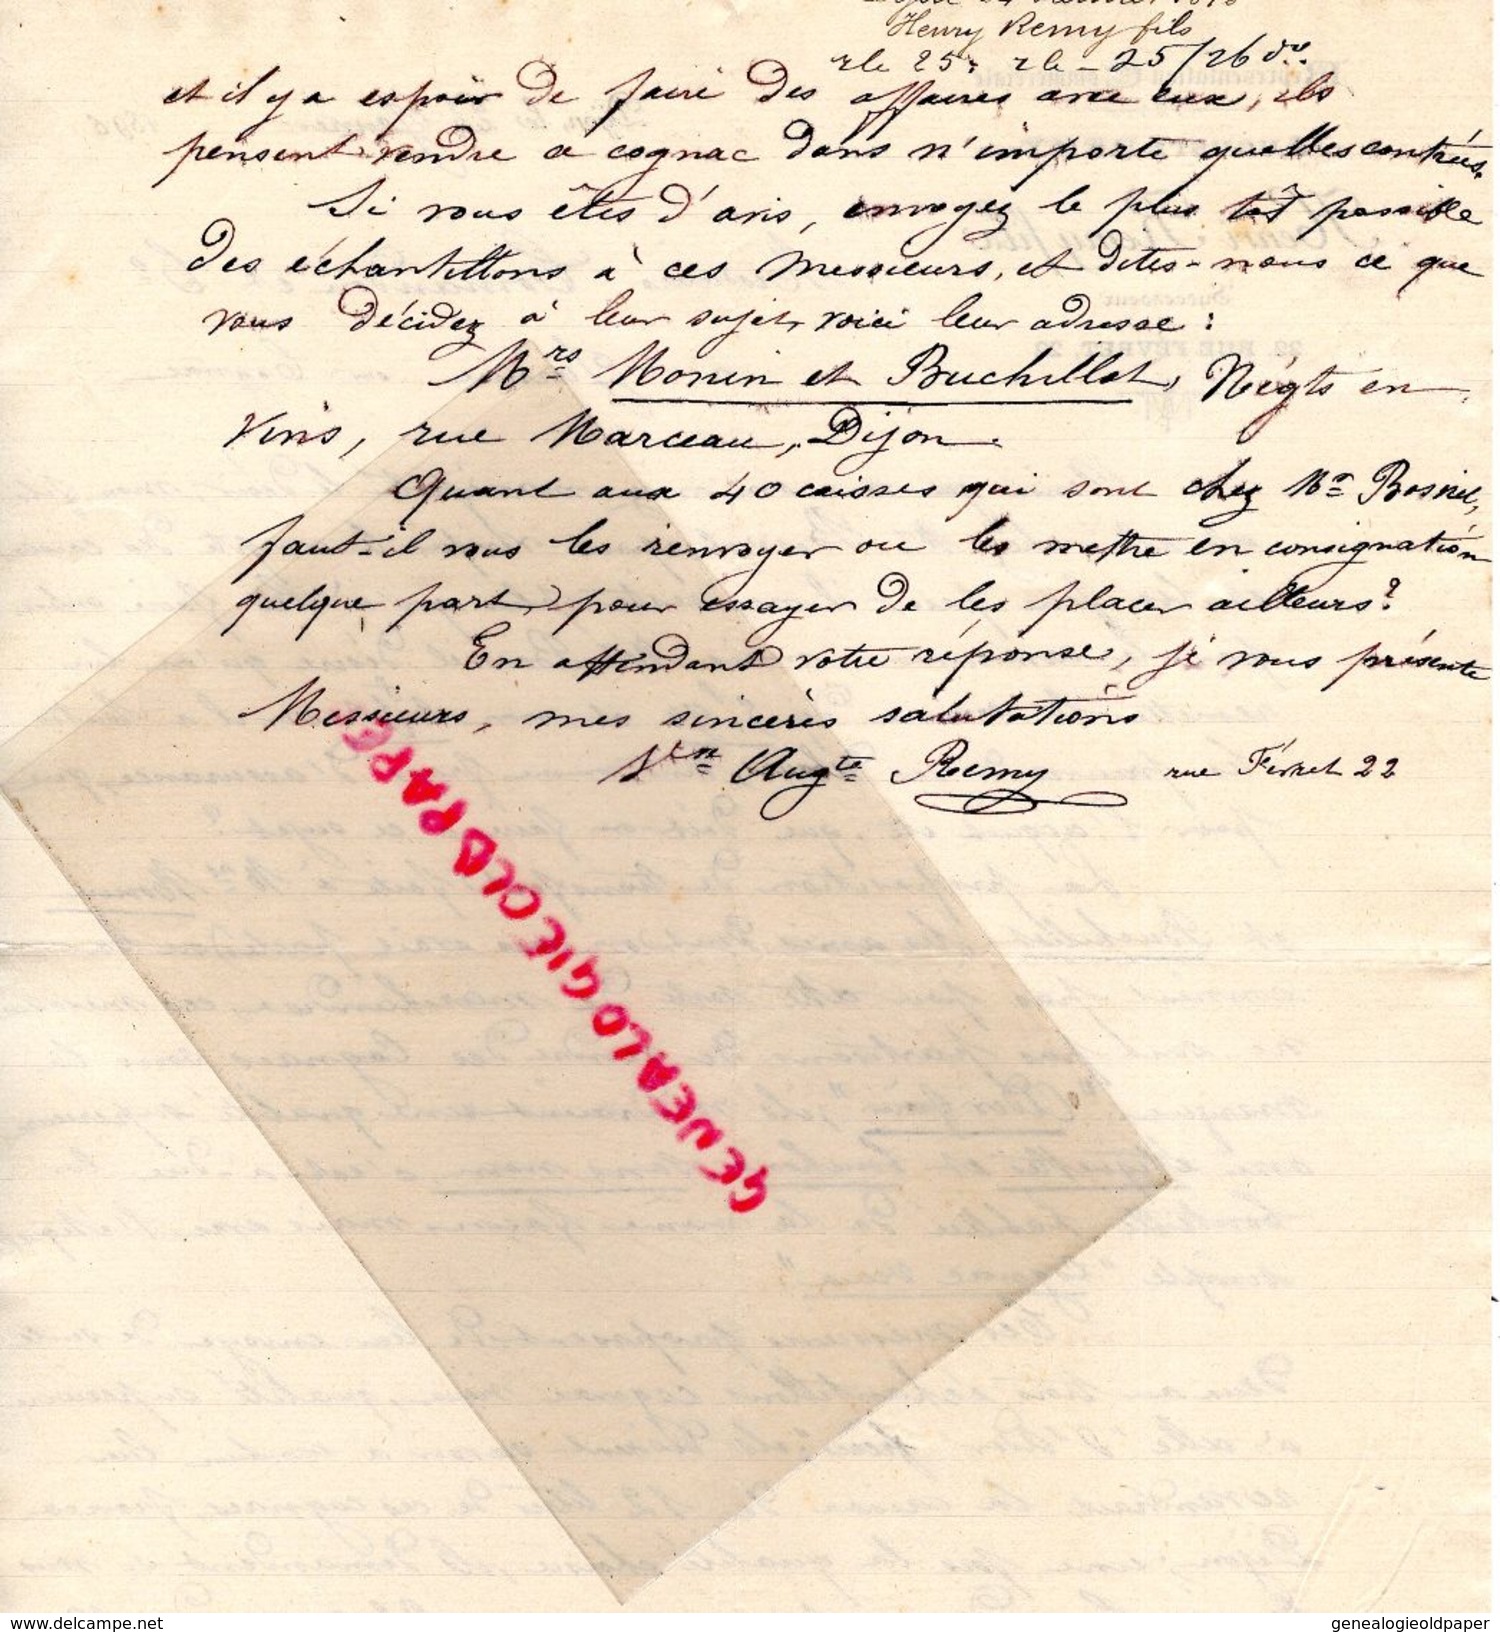 Henry Remy fils
rle 25. rle - 25/26 do.
et il y a espoir de faire des affaires avec eux, ils
pensent vendre ce cognac dans n'importe quelles contrées.
Si vous êtes d'avis, envoyez le plus tôt possible
des échantillons à ces Messieurs, et dites-nous ce que
vous décidez à leur sujet, voici leur adresse :
Mrs Monin et Buchillot, Négts en
vins, rue Marceau, Dijon.
Quant aux 40 caisses qui sont chez Mr
faut-il vous les renvoyer ou les mettre en consignation
quelque part pour essayer de les placer ailleurs?
En attendant votre réponse, je vous présente
Messieurs, mes sincères salutations
Augte Remy rue Févret 22
GENEALOGIEOLDPAPE
www.delcampe.net
genealogieoldpaper